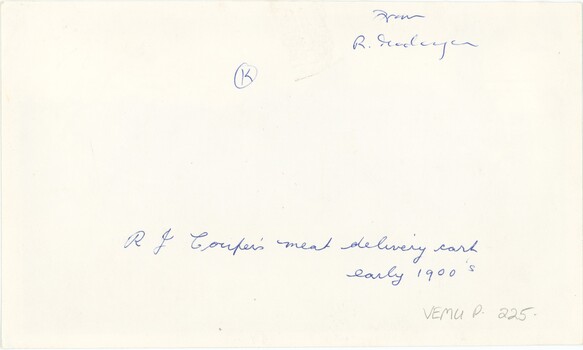 From
R.
K
R J Couper's meat delivery cart
early 1900's
VEMU P. 225.